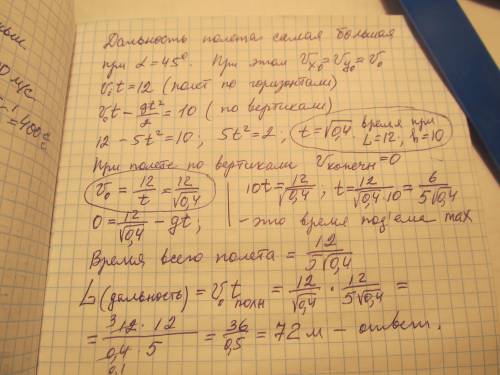 Дальность полета самая большая
при α=45°. При этом Vx₀=Vy₀=V₀
V₀t=12 (полет по горизонтали)
V₀t-gt²/2=10 (по вертикали)
12-5t²=10; 5t²=2, t=√0,4 время при L=12; h=10
При полете по вертикали Vконечн=0
V₀=12/t=12/√0,4 | 10t=12/√0,4, t=12/(√0,4·10)=6/(5√0,4)
0=12/√0,4-gt; | - это время подъема max
Время всего полета = 12/(5√0,4)
L(дальность)=V₀tполн=12/√0,4·12/(5√0,4)=
=(12·12)/(0,4·5)=36/0,5=72м - ответ.